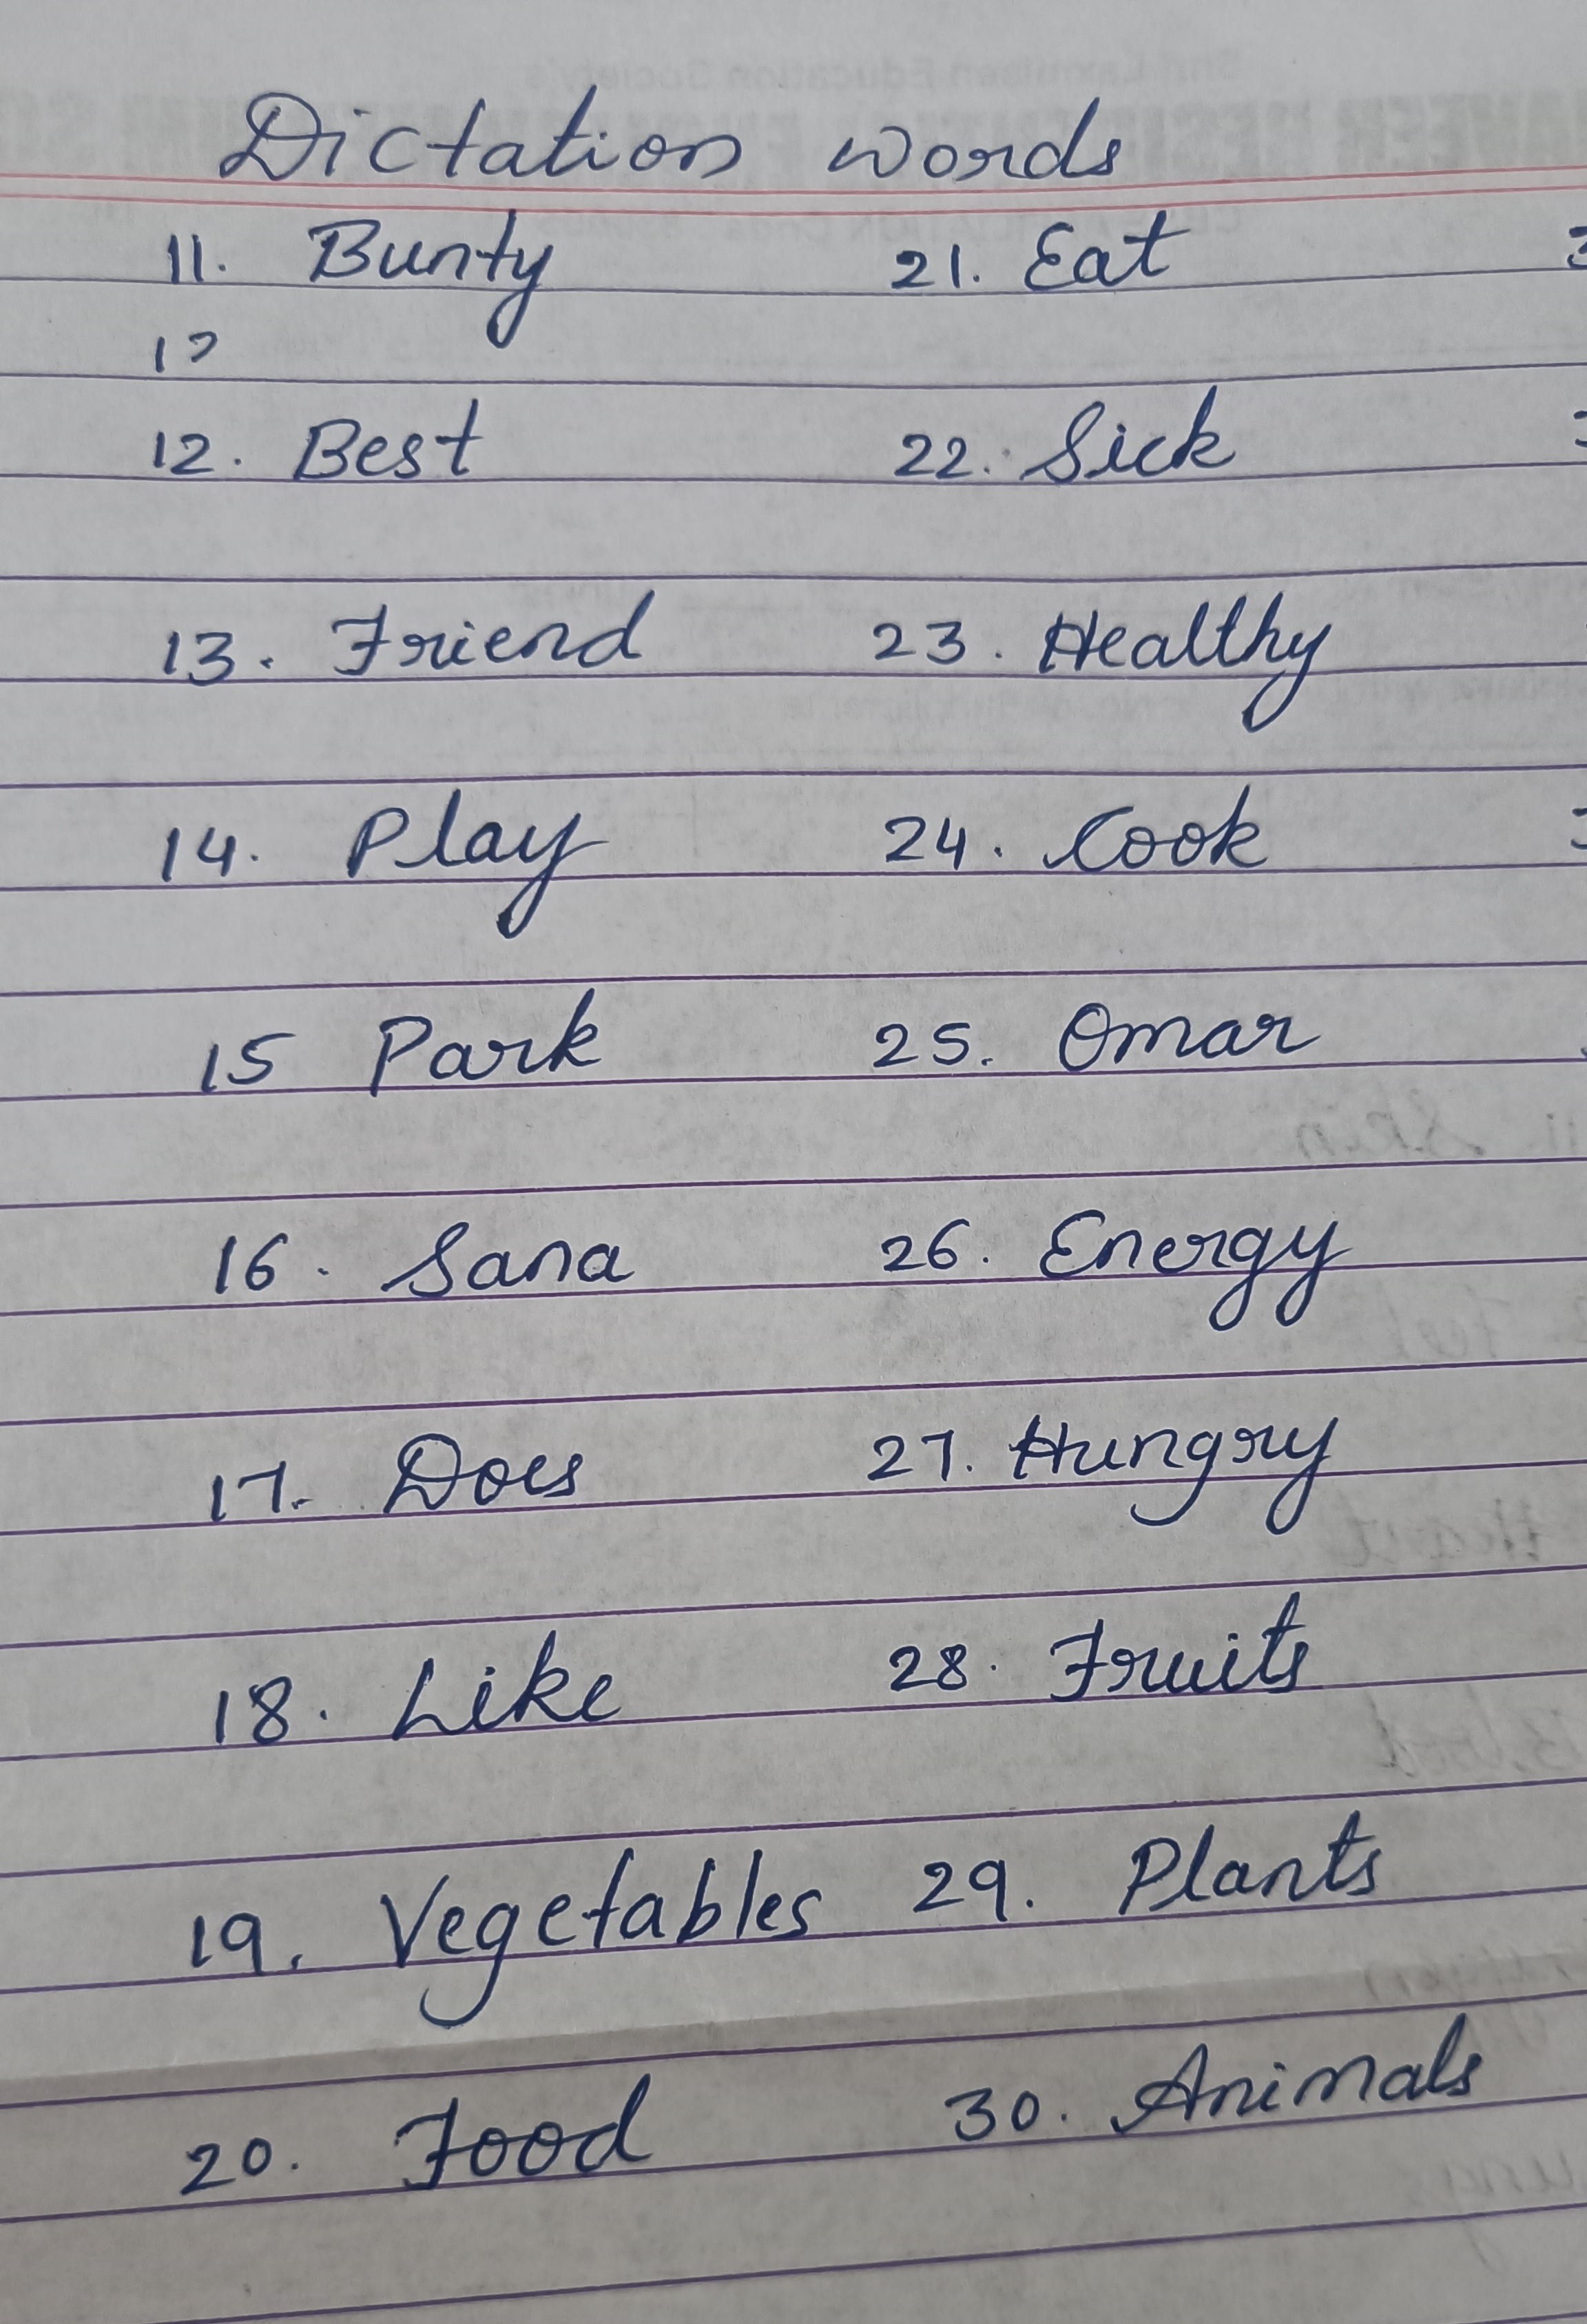 Dictation words
11. Bunty 21. Eat
12
12. Best 22. Sick
13. Friend 23. Healthy
14. Play 24. Cook
15 Park 25. Omar
16. Sana 26. Energy
17. Does 27. Hungry
18. Like 28. Fruits
19. Vegetables 29. Plants
20. Food 30. Animals